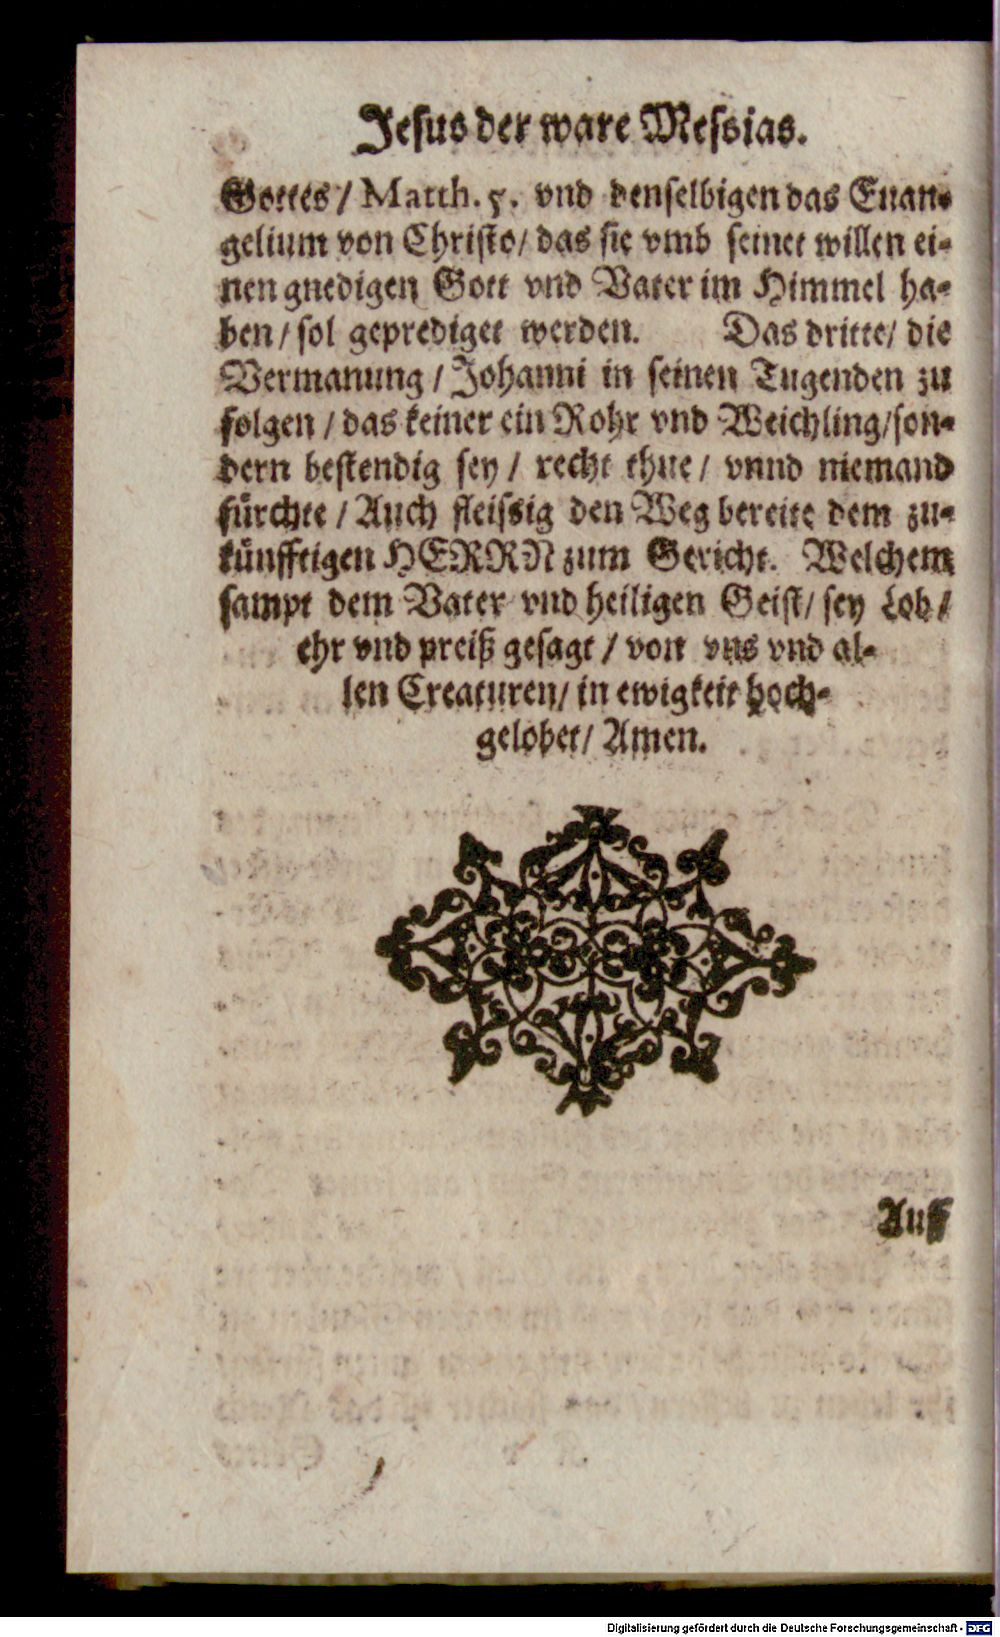 Jesus der ware Messias.
Gottes / Matth. 5. vnd denselbigen das Euan-
gelium von Christo / das sie vmb seinet willen ei-
nen gnedigen Gott vnd Vater im Himmel ha-
ben / sol geprediget werden. Das dritte / die
Vermanung / Johanni in seinen Tugenden zu
folgen / das keiner ein Rohr vnd Weichling / son-
dern bestendig sey / recht thue / vnnd niemand
fürchte / Auch fleissig den Weg bereite dem zu-
künfftigen HERRN zum Gericht. Welchem
sampt dem Vater vnd heiligen Geist / sey Lob /
ehr vnd preiß gesagt / von vns vnd al-
len Creaturen / in ewigkeit hoch-
gelobet / Amen.
Auff
Digitalisierung gefördert durch die Deutsche Forschungsgemeinschaft - DFG